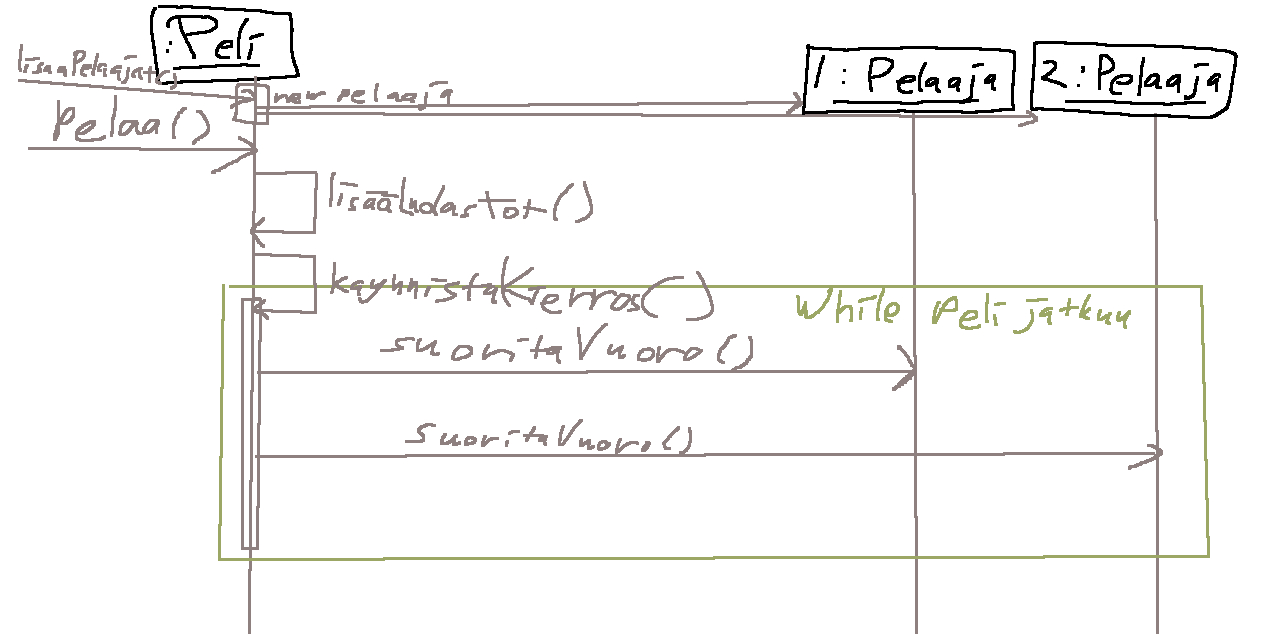 :Peli
1: Pelaaja
2:Pelaaja
lisaaPelaajat()
new pelaaja
Pelaa()
lisääLudastot()
kaynnistaKierros()
While Peli jatkuu
suoritaVuoro()
suoritaVuoro()